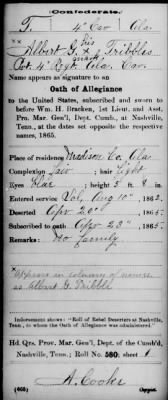 Confederate.
T. 4" Cav Ala.
his
Albert G. X Tribbles
mark
Pvt 4" Regt. Ala. Cav.
Name appears as signature to an
Oath of Allegiance
to the United States, subscribed and sworn to
before Wm. H. Bracken, 1st Lieut. and Asst.
Pro. Mar. Gen'l, Dept. Cumb., at Nashville,
Tenn., at the dates set opposite the respective
names, 1865.
Place of residence Madison Co, Ala
Complexion fair ; hair light
Eyes blue ; height 5 ft. 8 in.
Entered service Vol, Aug 10", 1862.
Deserted Apr 20", 1865.
Subscribed to oath Apr 23", 1865.
Remarks: No family
*Appears in column of names
as Albert G. Tribble
Indorsement shows: "Roll of Rebel Deserters at Nashville,
Tenn., to whom the Oath of Allegiance was administered."
Hd. Qrs. Prov. Mar. Gen'l, Dept. of the Cumb.,
Nashville, Tenn.; Roll No. 580; sheet 1
A. Cooke
(466) Copyist.